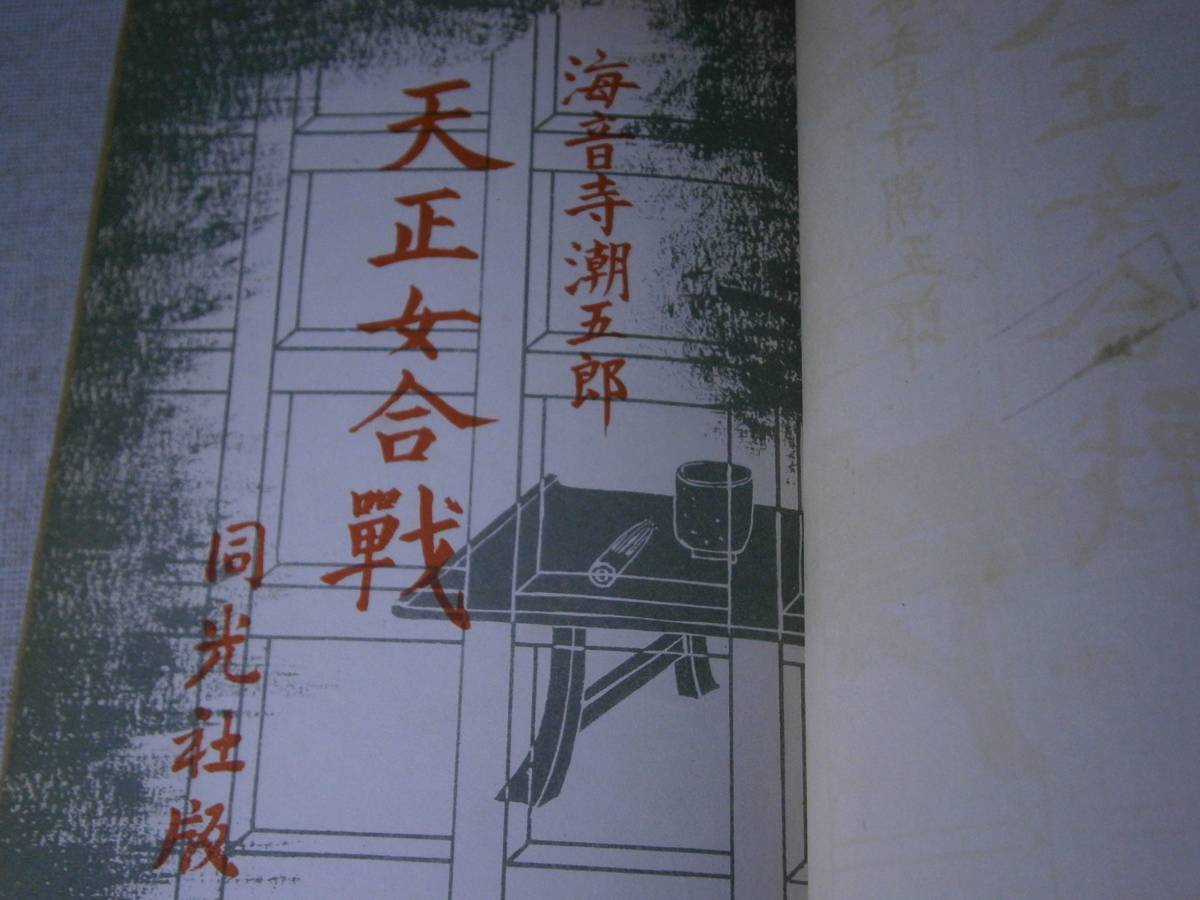 海音寺潮五郎
天正女合戰
同光社版